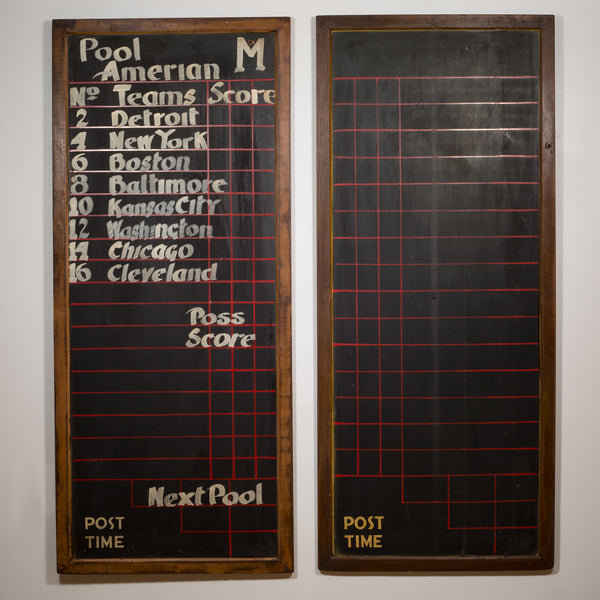 Pool M
Amerian
No Teams Score
2 Detroit
4 New York
6 Boston
8 Baltimore
10 Kansas CITY
12 Washington
14 Chicago
16 Cleveland
Poss
Score
Next Pool
POST
TIME
POST
TIME